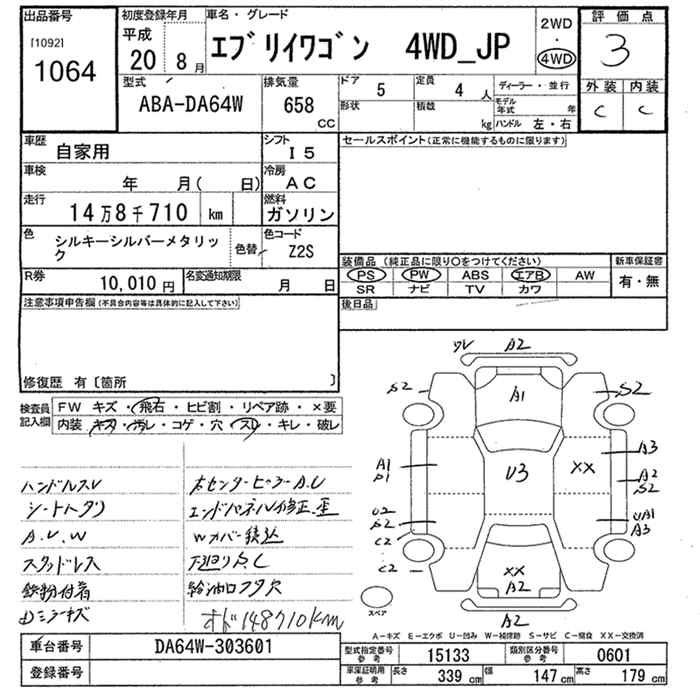 出品番号
[1092]
1064
初度登録年月
平成
20 8 月
車名・グレード
エブリイワゴン 4WD_JP
2WD
・
4WD
評価点
3
外装 内装
C C
型式
ABA-DA64W
排気量
658
CC
ドア
5
定員
4 人
形状
積載
kg
ディーラー・並行
モデル年式 年
ハンドル 左・右
車歴
自家用
シフト
I5
車検
年 月( 日)
冷房
AC
走行
14万8千710 km
燃料
ガソリン
色
シルキーシルバーメタリック
色替
色コード
Z2S
R券
10,010円
名変通知期限
月 日
セールスポイント(正常に機能するものに限ります)
装備品(純正品に限り○をつけてください)
PS PW ABS エアB AW
SR ナビ TV カワ
新車保証書
有・無
後日品
注意事項申告欄(不具合内容等は具体的に記入して下さい)
修復歴 有〔箇所 〕
検査員記入欄
FW キズ・飛石・ヒビ割・リペア跡・×要
内装 キズ・汚レ・コゲ・穴・スレ・キレ・破レ
ハンドルスレ
シートヘタリ
A.U.W
スタッドレス
鉄粉付着
センターピラーA.U
エンドパネル修正.歪
Wカバー積込
下廻りS.C
給油口フタ欠
オド148710km
ワレ A2
S2
A1
S2
A1
P1
U3
XX
A3
A2
S2
U2
S2
C2
UA1
A3
C2
XX
A2
A2
スペア
A-キズ E-エクボ U-凹み W-補修跡 S-サビ C-腐食 XX-交換済
車台番号
DA64W-303601
登録番号
型式指定番号
参考
15133
類別区分番号
参考
0601
車庫証明用
参考
長さ 339 cm 幅 147 cm 高さ 179 cm